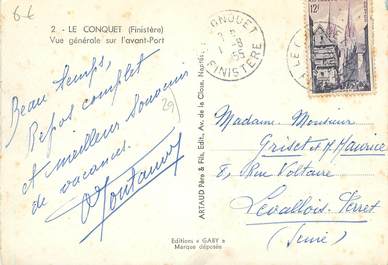 8 €
2 - LE CONQUET (Finistère)
Vue générale sur l'avant-Port
Beau temps,
Repos complet
et meilleur Souvenir
de vacances.
29
ARTAUD Père & Fils, Edit., Av. de la Close, Nantes
Editions « GABY »
Marque déposée
CONQUET
FINISTERE
12F
Madame. Monsieur
Griset et H. Maurice
8, Rue Voltaire
Levallois-Perret
(Seine)